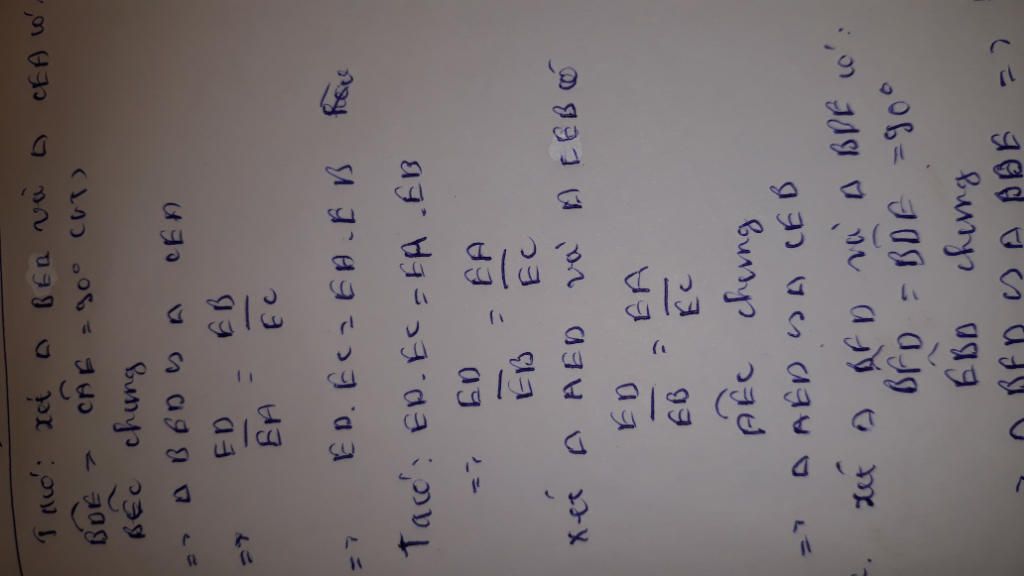 Ta có: xét Δ BED và Δ CEA có:
BDE = CAE = 90° (GT)
BEC chung
=> Δ BED ∽ Δ CEA
=> ED/EA = EB/EC
=> ED.EC = EA.EB
Ta có: ED.EC = EA.EB
=> ED/EB = EA/EC
xét Δ AED và Δ CEB có
ED/EB = EA/EC
AEC chung
=> Δ AED ∽ Δ CEB
c. xét Δ BFD và Δ BDE có:
BFD = BDE = 90°
EBD chung
=> Δ BFD ∽ Δ BDE =>